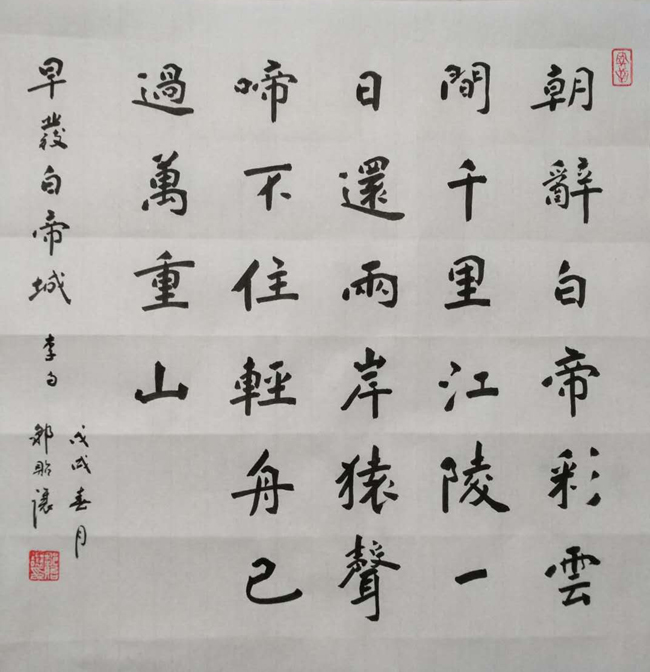 朝辭白帝彩雲
間千里江陵一
日還兩岸猿聲
啼不住輕舟已
過萬重山
早發白帝城 李白
戊戌春月
鄒昭讓